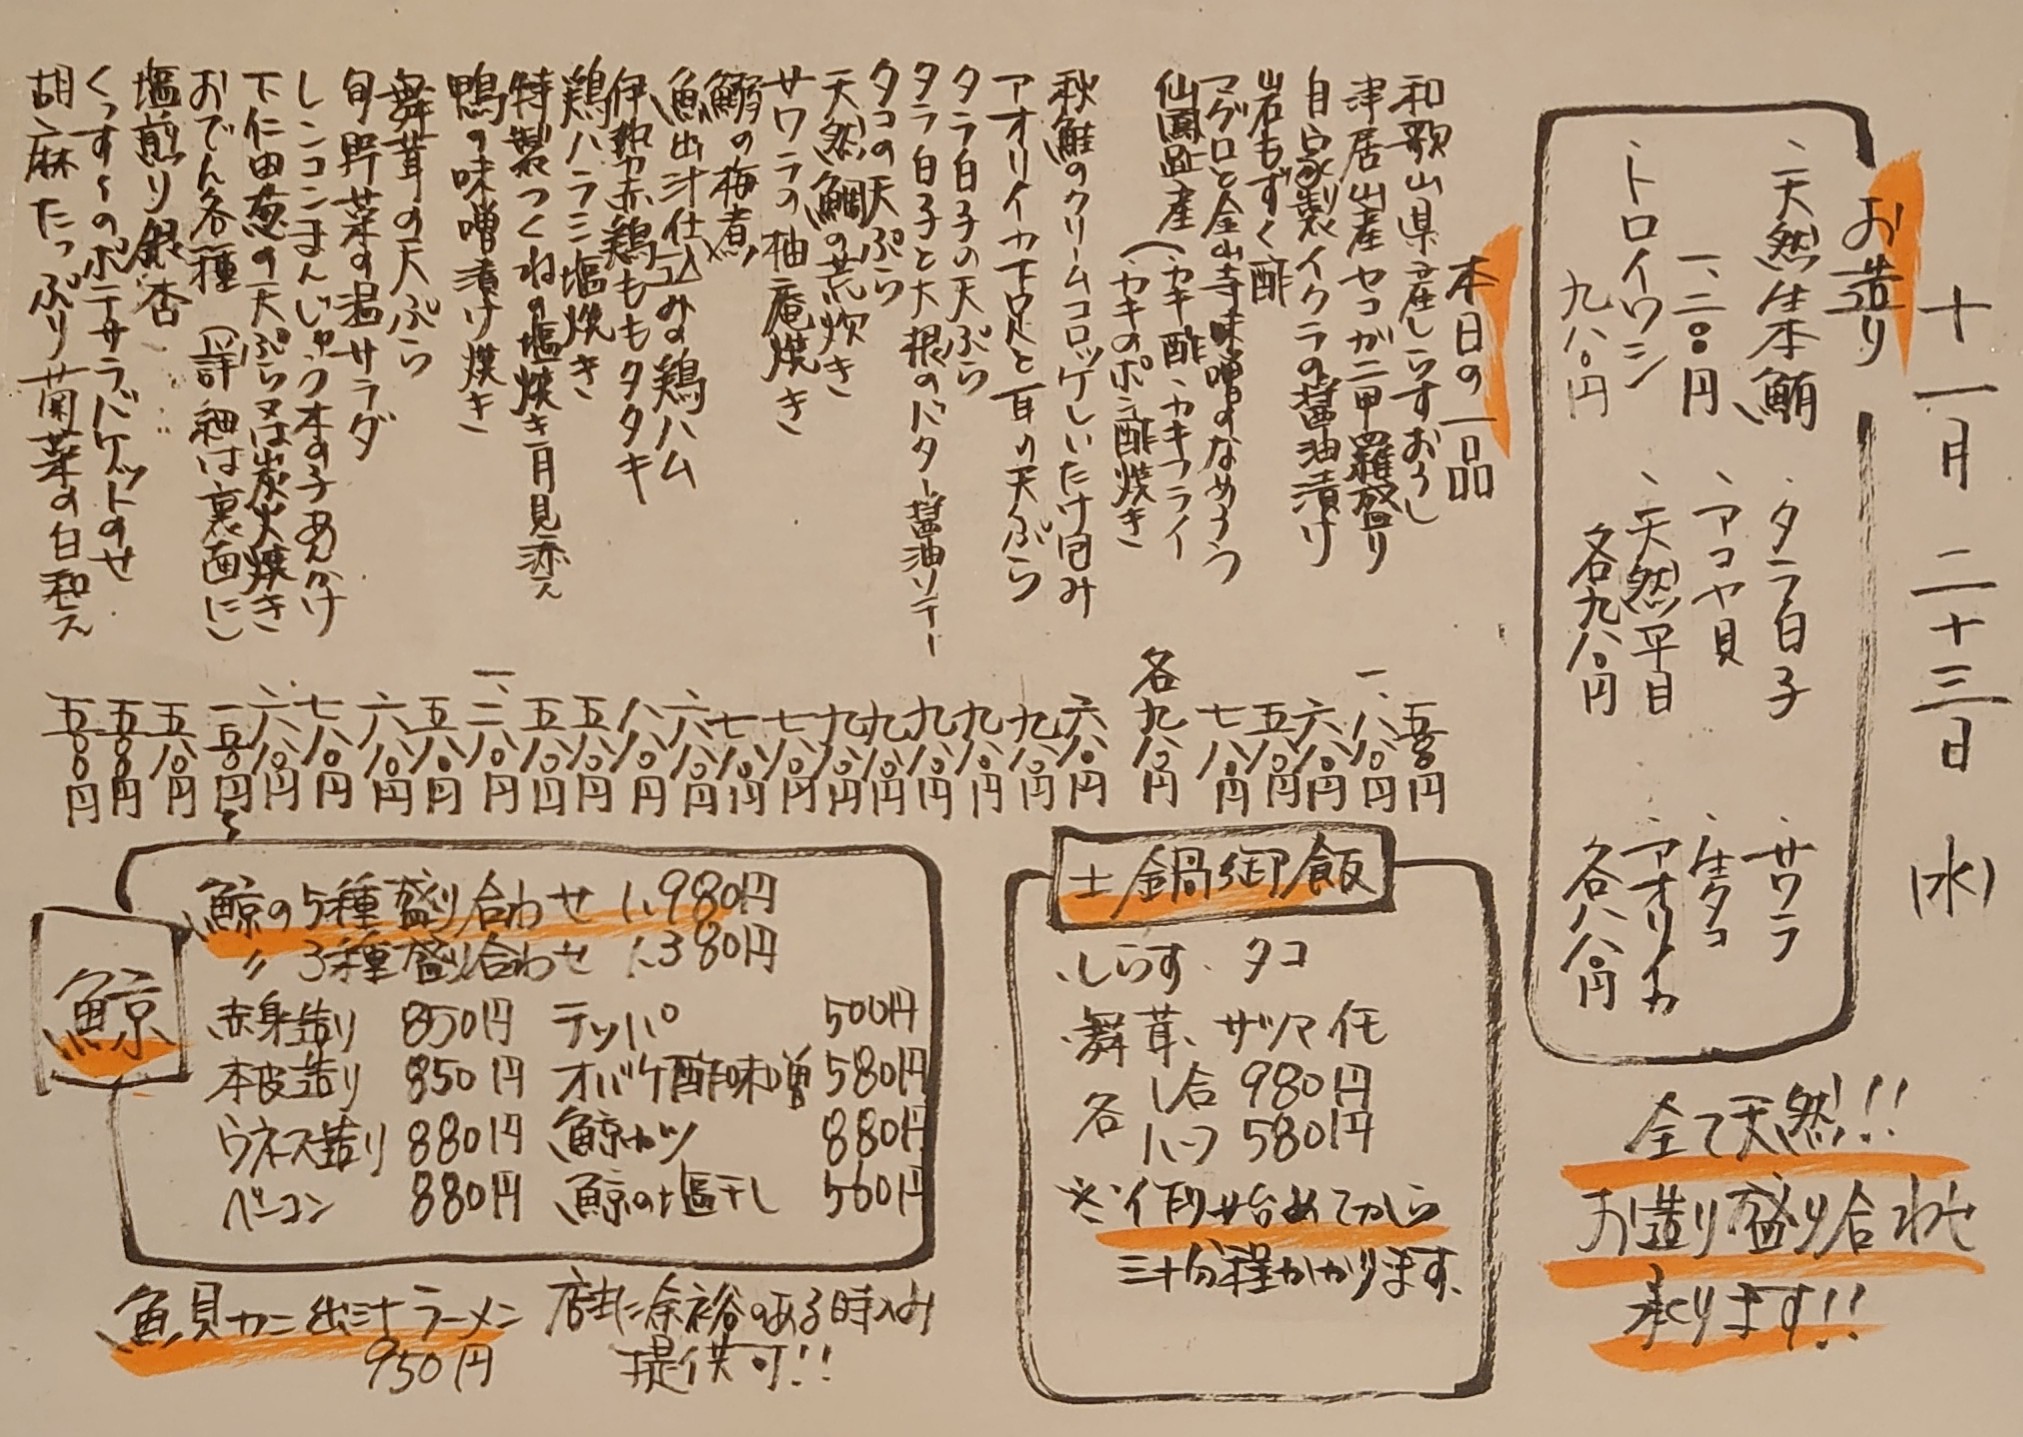 十一月二十三日(水)
お造り
、天然生本鮪
一、二〇〇円
、トロイワシ
九八〇円
、タラ白子
、アコヤ貝
、天然平目
各九八〇円
、サワラ
、生タコ
、アオリイカ
各八八〇円
全て天然!!
お造り盛り合わせ
承ります!!
本日の一品
和歌山県産しらすおろし 五八〇円
津居山産セコガニ甲羅盛り 一、八八〇円
自家製イクラの醤油漬け 六八〇円
岩もずく酢 五八〇円
マグロと金山寺味噌のなめろう 七八〇円
仙鳳趾産(カキ酢・カキフライ
カキのポン酢焼き 各九八〇円
秋鮭のクリームコロッケしいたけ包み 六八〇円
アオリイカ下足と耳の天ぷら 九八〇円
タラ白子の天ぷら 九八〇円
タラ白子と大根のバター醤油ソテー 九八〇円
タコの天ぷら 九八〇円
天然鯛の荒炊き 九八〇円
サワラの柚庵焼き 七八〇円
鰯の梅煮 七八〇円
魚出汁仕込みの鶏ハム 六八〇円
伊勢赤鶏ももタタキ 八八〇円
鶏ハラミ塩焼き 五八〇円
特製つくねの塩焼き 月見添え 五八〇円
鴨の味噌漬け焼き 一、二八〇円
舞茸の天ぷら 五八〇円
旬野菜の温サラダ 六八〇円
レンコンまんじゅう木の子あんかけ 七八〇円
下仁田葱の天ぷら又は炭火焼き 六八〇円
おでん各種(詳細は裏面に) 一五〇円〜
塩煎り銀杏 五八〇円
くっす〜のポテサラバケットのせ 五〇〇円
胡麻たっぷり菊菜の白和え 五〇〇円
土鍋御飯
、しらす、タコ
、舞茸、サツマイモ
各 1合 980円
ハーフ 580円
※作り始めてから
三十分程かかります。
鯨
、鯨の5種盛り合わせ 1,980円
〃 3種盛り合わせ 1,380円
赤身造り 850円 テッパ 500円
本皮造り 850円 オバケ酢味噌 580円
ウネス造り 880円 鯨カツ 880円
ベーコン 880円 鯨の塩干し 560円
魚貝カニ出汁ラーメン
950円
店主に余裕のある時のみ
提供可!!